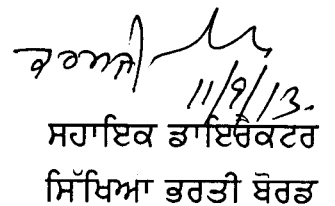 11/9/13.
ਸਹਾਇਕ ਡਾਇਰੈਕਟਰ
ਸਿੱਖਿਆ ਭਰਤੀ ਬੋਰਡ